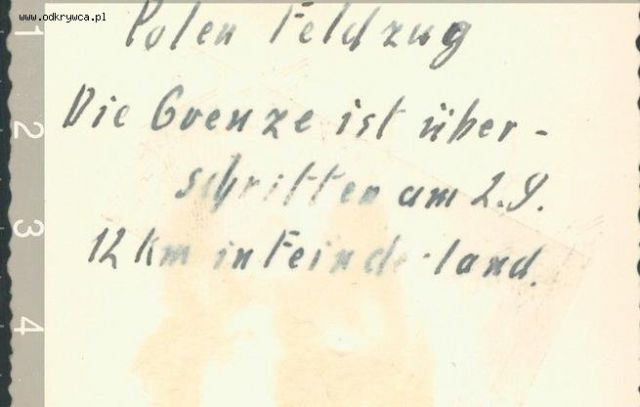 www.odkrywca.pl
Polen Feldzug
Die Grenze ist über-
schritten am 2.9.
12 km in Feindesland.
1
2
3
4